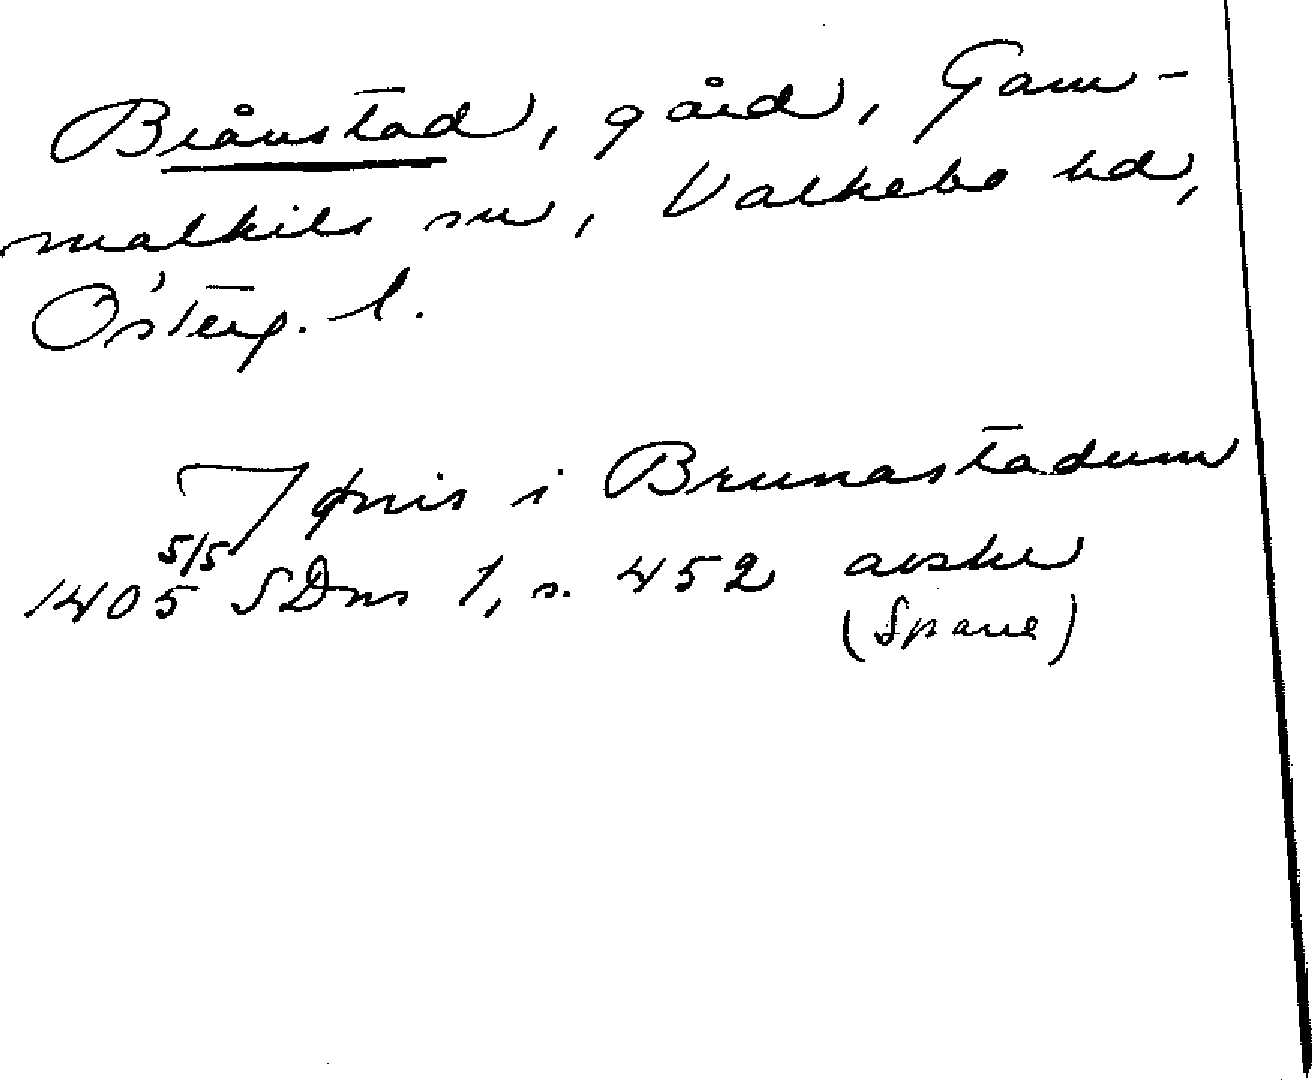 Brånstad, gård, Gam-
malkils sn, Valkebo hd,
Österg. l.
Jønis i Brunastadum
5/5
1405 SDns 1, s. 452 avskr
(Sparre)